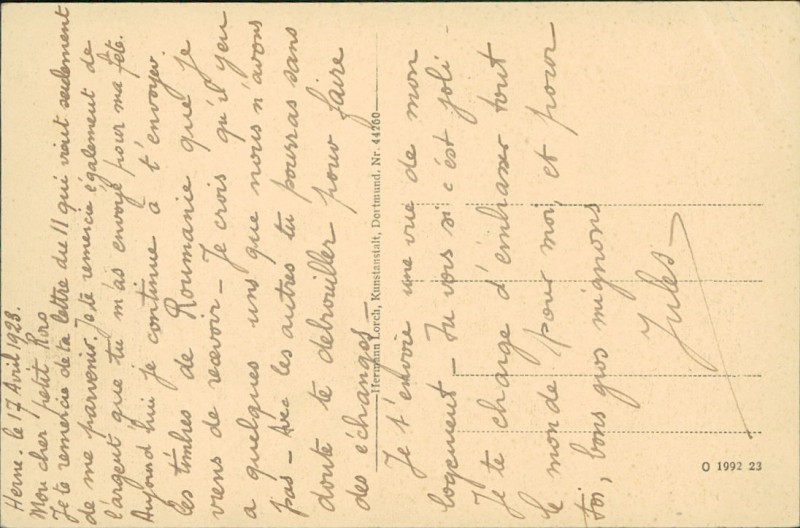 Herne. le 17 Avril 1923.
Mon cher petit Roro
Je te remercie de ta lettre du 11 qui vient seulement
de me parvenir. Je te remercie également de
l'argent que tu m'as envoyé pour ma fête.
Aujourd'hui je continue à t'envoyer
les timbres de Roumanie que je
viens de recevoir - Je crois qu'il y en
a quelques uns que nous n'avons
pas - Avec les autres tu pourras sans
doute te débrouiller pour faire
des échanges -
Hermann Lorch, Kunstanstalt, Dortmund. Nr. 44260
Je t'envoie une vue de mon
logement - Tu vois si c'est joli -
Je te charge d'embrasser tout
le monde pour moi, et pour
toi, bons gros mignons
Jules -
O 1992 23